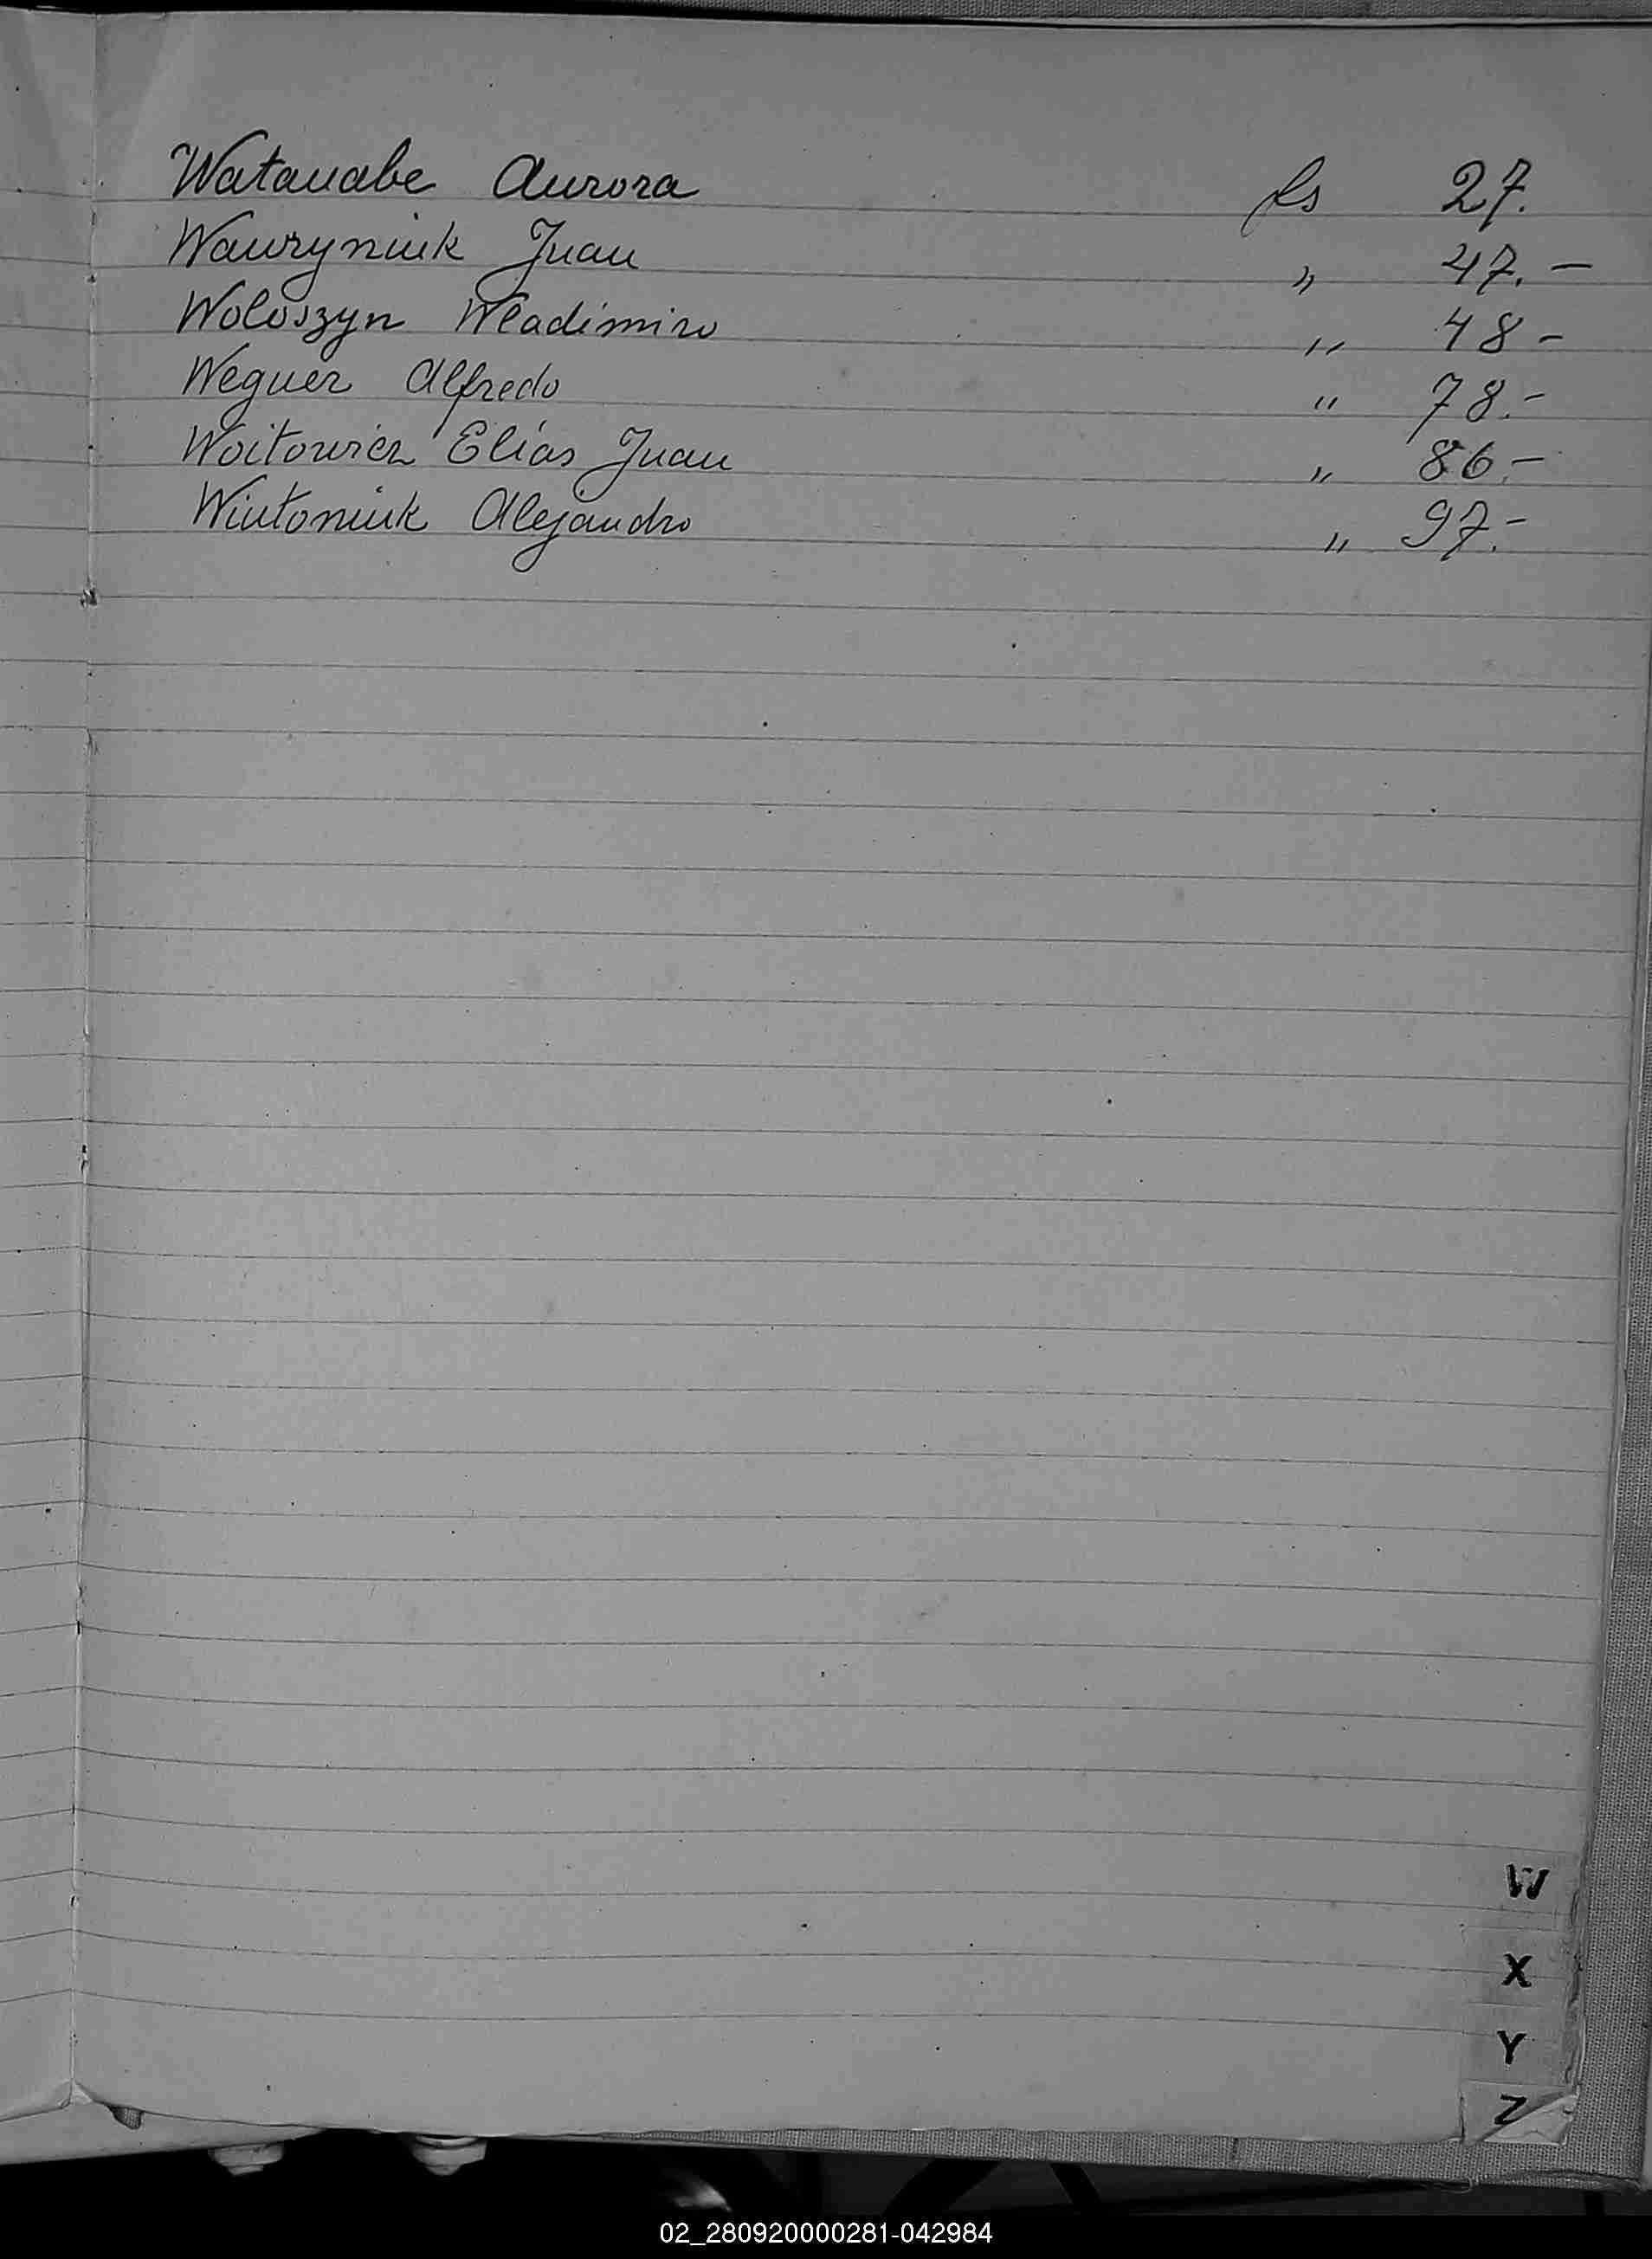 Watanabe Aurora fs 27.
Wawryniuk Juan " 47.-
Woloszyn Wladimiro " 48-
Weguer Alfredo " 78.-
Woitowicz Elías Juan " 86.-
Wintoniuk Alejandro " 97.-
W
X
Y
Z
02_280920000281-042984